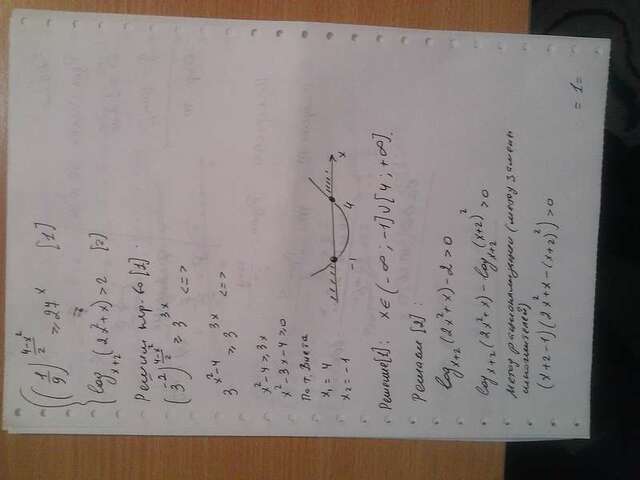 { (1/9)^((4-x²)/2) ≥ 27^x [1]
{ log_{x+2}(2x²+x) > 2 [2]
Решим нер-во [1]:
(3^(-2))^((4-x²)/2) ≥ 3^(3x) <=>
3^(x²-4) ≥ 3^(3x) <=>
x²-4 ≥ 3x
x²-3x-4 ≥ 0
По т. Виета
x₁ = 4
x₂ = -1
-1 4 x
Решение[1]: x∈(-∞; -1]∪[4; +∞).
Решаем [2]:
log_{x+2}(2x²+x) - 2 > 0
log_{x+2}(2x²+x) - log_{x+2}(x+2)² > 0
Метод рационализации (метод замены
множителей)
(x+2-1)(2x²+x-(x+2)²) > 0
=1=